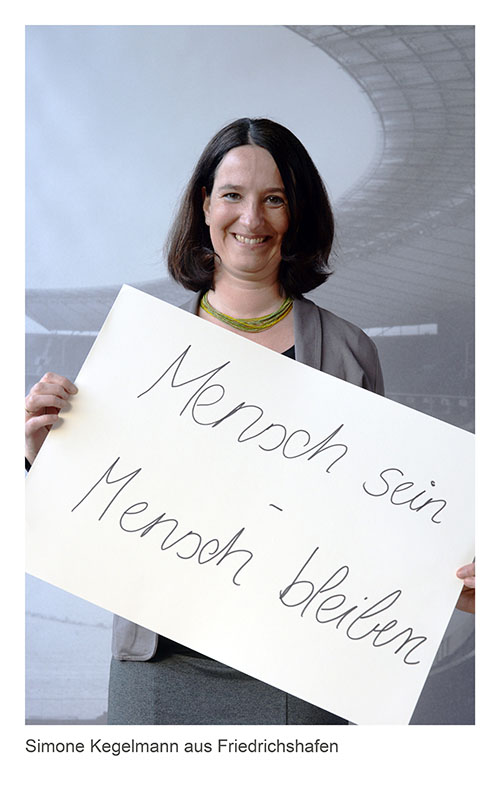 Mensch sein
-
Mensch bleiben
Simone Kegelmann aus Friedrichshafen